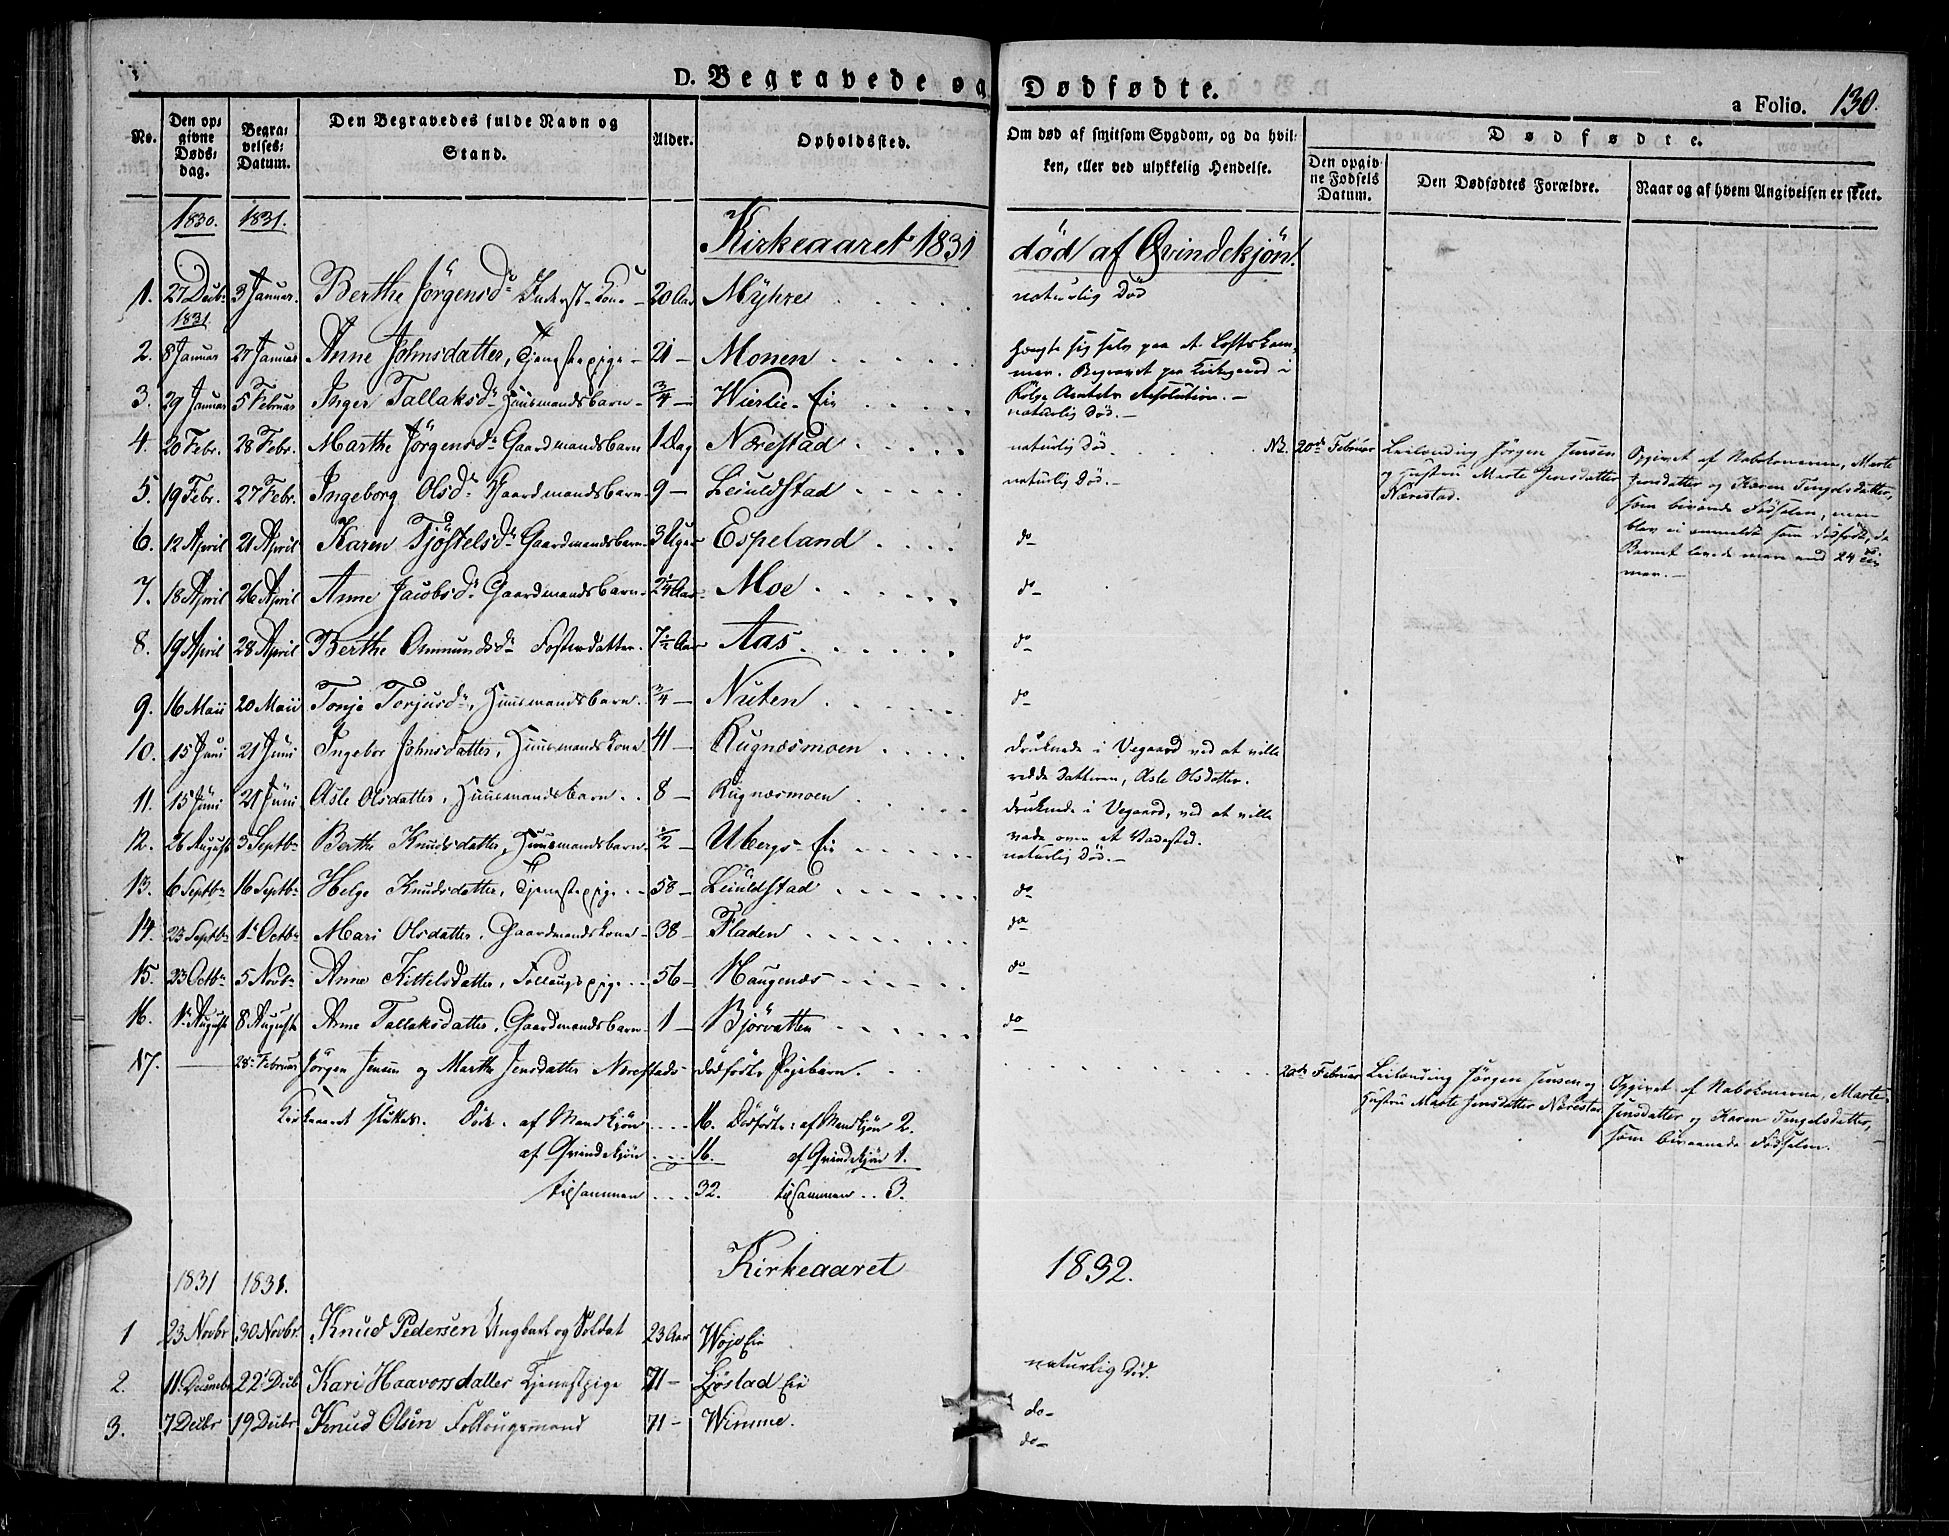 D. Begravede og Dødfødte.
a Folio. 130.
No.
Den opgivne Dødsdag.
Begravelses-Datum.
Den Begravedes fulde Navn og Stand.
Alder.
Opholdssted.
Om død af smitsom Sygdom, og da hvilken, eller ved ulykkelig Hendelse.
Dødfødte.
Den opgivne Fødsels Datum.
Den Dødfødtes Forældre.
Naar og af hvem Angivelsen er skeet.
1830. 1831. Kirkeaaret 1831 død af Qvindekjøn.
1. 27 Decbr 3 Januar. Berthe Jörgensdr Inderst-Kone - 20 Aar Myhre naturlig Död
1831
2. 8 Januar 27 Januar Anne Johnsdatter, Tjenestepige - 21 - Monen hengte sig selv paa et Loftskam-
mer. Begravet paa Kirkegaard -
Følge Amtets Resolution. -
3. 29 Januar 5 Februar Inger Tallaksdr Huusmandsbarn - 3/4 - Wierlie-Eie naturlig Död. -
4. 20 Febr. 28 Febr. Marthe Jörgensdr Gaardmandsbarn 1 Dag Nærestad naturlig Död NB. 20de Februar Leilænding Jörgen Jensen
og Hustru Marte Jensdatter
Nærestad.
Opgivet af Nabokonerne, Marte
Jensdatter og Karen Tengelsdatter,
som bivaande Fødselen, men
blev ei anmeldt som dödfödt, da
Barnet levede mere end 24 Ti-
mer. -
5. 19 Febr. 27 Febr. Ingeborg Olsdr Gaardmandsbarn 9 - Leiuldstad naturlig Dö. -
6. 12 April 21 April Karen Tjöstelsdr Gaardmandsbarn 3 Uger Espeland do
7. 18 April 26 April Anne Jacobsdr Gaardmandsbarn 2 1/4 Aar Moe do
8. 19 April 28 April Berthe Omundsdr Fosterdatter. 7 1/2 Aar Aas do
9. 16 Maii 20 Maii Tonje Torjusdr, Huusmandsbarn. 3/4 - Nuten do
10. 15 Juni 21 Juni Ingebor Johnsdatter, Huusmandskone 41 - Rugnæsmoen druknede i Vegaard ved at ville
redde Datteren, Asle Olsdatter.
11. 15 Juni 21 Juni Asle Olsdatter, Huusmandsbarn. 8 - Rugnæsmoen druknede i Vegaard, ved at ville
vade over et Vadested.
12. 26 August 3 Septbr Berthe Knudsdatter, Huusmandsbarn 1/2 - Ubergs-Eie naturlig Död. -
13. 6 Septbr 16 Septbr Helge Knudsdatter, Tjenestepige 58 - Leiuldstad do
14. 23 Septbr 1 Octbr Mari Olsdatter, Gaardmandskone 38 - Fladen do
15. 23 Octbr 5 Novbr Anne Kittelsdatter, Follaugspige 56 - Haugenæs do
16. 1 August 8 August Anne Tallaksdatter, Gaardmandsbarn 1 - Björvatten do
17. 28 Februar Jörgen Jensen og Marthe Jensdatter Nærestads dödfödte Pigebarn. 20de Februar Leilænding Jörgen Jensen og
Hustru Marte Jensdatter Nærestad
Opgivet af Nabokonerne, Marte
Jensdatter og Karen Tengelsdatter,
som bivaanede Födselen.
Kirkeaaret sluttes. Döde af Mandkjön 16. Dödfödte af Mandkjön 2.
af Qvindekjön 16. af Qvindekjön 1.
tilsammen 32. tilsammen 3.
1831 1831. Kirkeaaret 1832.
1 23 Novbr 30 Novbr. Knud Pedersen Ungkarl og Soldat 23 Aar Eie
2. 11 Decembr 22 Decbr Kari Haavorsdatter Tjenestpige 71 - Löstad Eie naturlig Död.
do
3. 7 Decbr 19 Decbr Knud Olsen Follougsmand 71 - Wimme. do